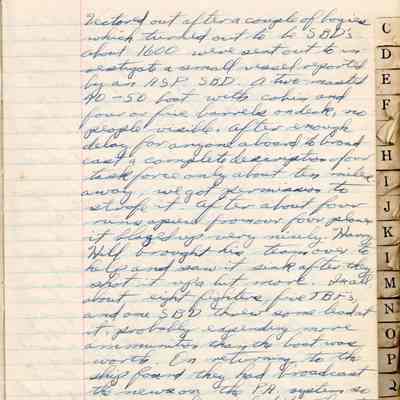 Vectored out after a couple of bogies
which turned out to be SBD's
about 1600 were sent out to in-
vestigate a small vessel reported
by an ASP SBD. A two masted
40-50 boat with cabin and
four or five barrels on deck, no
people visible. After enough
delay for anyone aboard to broad
cast a complete description of our
task force only about ten miles
away, we got permission to
strafe it. After about four
runs apiece from our four planes
it blazed up very nicely. Harry
brought his team over to
help and saw it sink after they
shot it up a bit more. In all
about eight fighters, five TBF's,
and one SBD threw some lead at
it, probably expending more
ammunition than the boat was
worth. On returning to the
ship found they had broadcast
the news on the P.A. system so
C
D
E
F
H
I
J
K
I
M
N
O
P
Q